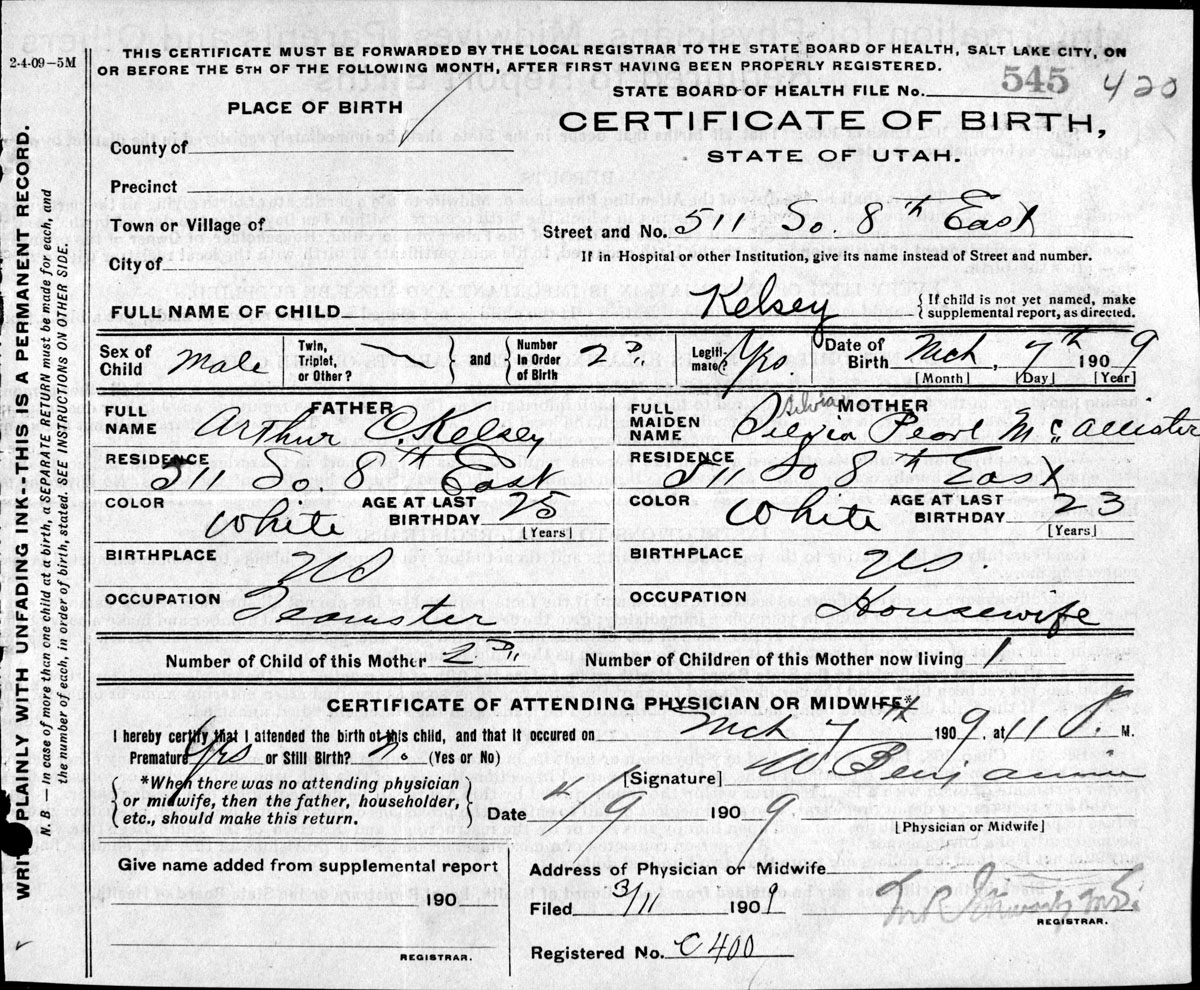 2-4-09-5M
THIS CERTIFICATE MUST BE FORWARDED BY THE LOCAL REGISTRAR TO THE STATE BOARD OF HEALTH, SALT LAKE CITY, ON
OR BEFORE THE 5TH OF THE FOLLOWING MONTH, AFTER FIRST HAVING BEEN PROPERLY REGISTERED.
STATE BOARD OF HEALTH FILE No. 545 420
PLACE OF BIRTH
CERTIFICATE OF BIRTH,
STATE OF UTAH.
County of
Precinct
Town or Village of
Street and No. 511 So. 8th East
City of
If in Hospital or other Institution, give its name instead of Street and number.
FULL NAME OF CHILD Kelsey
{ If child is not yet named, make
supplemental report, as directed.
Sex of Child Male
Twin, Triplet, or Other?
} and {
Number in Order of Birth 2
Legiti-mate? Yes.
Date of Birth Mch, 7th 1909
[Month] [Day] [Year]
FATHER
FULL NAME Arthur C. Kelsey
RESIDENCE 511 So 8th East
COLOR White
AGE AT LAST BIRTHDAY 25
[Years]
BIRTHPLACE US
OCCUPATION Teamster
MOTHER
FULL MAIDEN NAME Pearl McAllister
Silvia
RESIDENCE 511 So 8th East
COLOR White
AGE AT LAST BIRTHDAY 23
[Years]
BIRTHPLACE US.
OCCUPATION Housewife
Number of Child of this Mother 2
Number of Children of this Mother now living 1
CERTIFICATE OF ATTENDING PHYSICIAN OR MIDWIFE*
I hereby certify that I attended the birth of this child, and that it occured on Mch 7th 1909, at 11 P. M.
Premature Yes or Still Birth? No (Yes or No)
*When there was no attending physician
or midwife, then the father, householder,
etc., should make this return.
[Signature] W Benjamin
Date 4/9 1909
[Physician or Midwife]
Give name added from supplemental report
190
REGISTRAR.
Address of Physician or Midwife
Filed 3/11 1909
REGISTRAR.
Registered No. C400
WRITE PLAINLY WITH UNFADING INK--THIS IS A PERMANENT RECORD.
N. B. — In case of more than one child at a birth, a SEPARATE RETURN must be made for each, and
the number of each, in order of birth, stated. SEE INSTRUCTIONS ON OTHER SIDE.